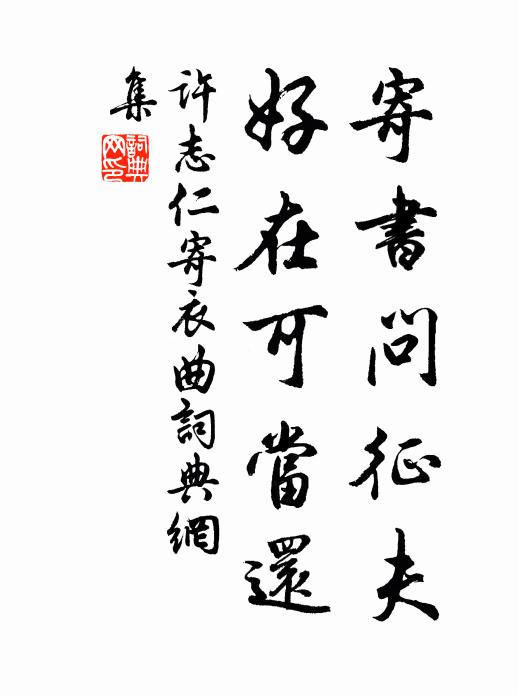 寄書問征夫
好在可當還
許志仁寄衣曲詞典網
集
詞典
网印